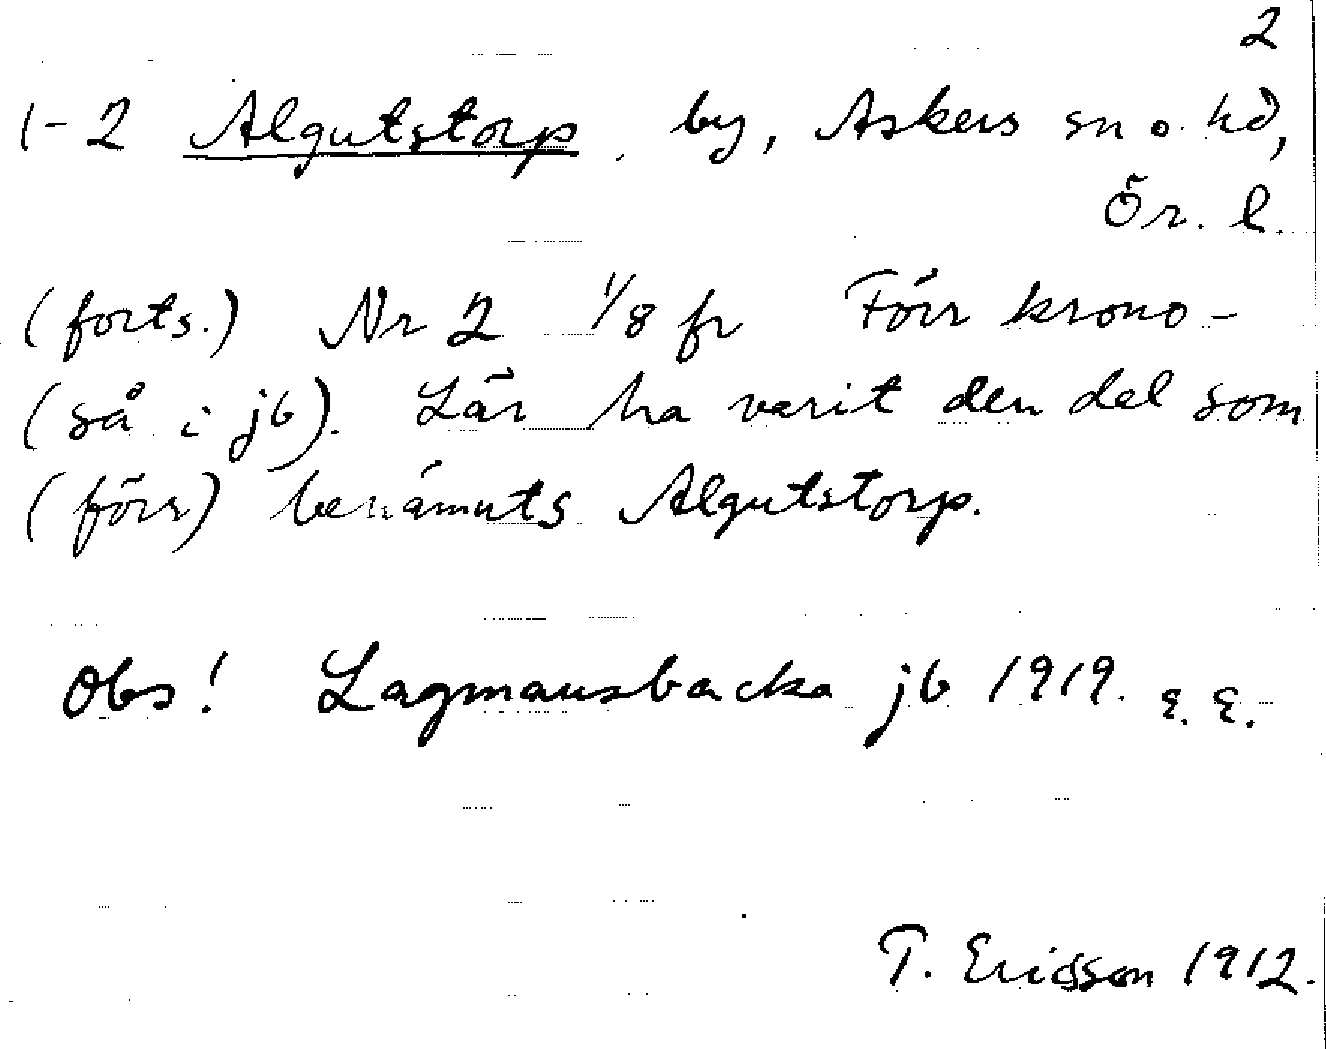 2
1-2 Algutstorp, by, Askers sn o. hd,
Ör. l.
(forts.) Nr 2 1/8 fr Förr krono-
(så i jb). Lär ha varit den del som
(förr) benämnts Algutstorp.
Obs! Lagmansbacka jb 1919. E. E.
T. Ericsson 1912.